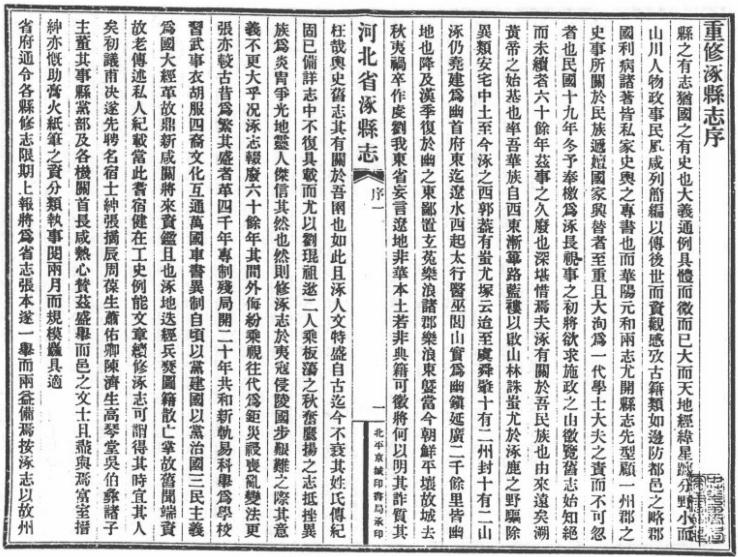 重修涿縣志序
縣之有志猶國之有史也大義通例具體而微而已大而天地經緯星躔分野小而
山川人物政事民風咸列簡編以傳後世而資觀感攷古籍類如邊防都邑之略郡
國利病諸著皆私家史輿之專書也而華陽元和兩志尤開縣志先型顧一州郡之
史事所關於民族遞嬗國家興替者至重且大洵爲一代學士大夫之責而不可忽
者也民國十九年冬予奉檄爲涿長視事之初將欲求施政之山徵覽舊志始知絶
而未續者六十餘年茲事之久廢也深堪惜焉夫涿有關於吾民族也由來遠矣溯
黃帝之始基也率吾華族自西東漸篳路藍褸以啟山林誅蚩尤於涿鹿之野驅除
異類安宅中土至今涿之西郭蓋有蚩尤塚云迨至虞舜肇十有二州封十有二山
涿仍堯建爲幽首府東迄遼水西起太行醫巫閭山實爲幽鎮延廣二千餘里皆幽
地也降及漢季復於幽之東鄙置玄菟樂浪諸郡樂浪東暨當今朝鮮平壤故城去
秋夷禍卒作虔劉我東省妄言遼地非華本土若非典籍可徵將何以明其詐質其
河北省涿縣志
序一
一
北平京城印書局承印
枉哉輿史舊志其有關於吾圉也如此且涿人文特盛自古迄今不衰其姓氏傳紀
固已備詳志中不復具載而尤以劉琨祖逖二人乘板蕩之秋奮鷹揚之志抵挫異
族爲炎胄爭光地靈人傑信其然也然則修涿志於夷寇侵陵國步艱難之際其意
義不更大乎况涿志輟廢六十餘年其間外侮紛乘視往代爲鉅災祲喪亂變法更
張亦較古昔爲繁其盛者革四千年專制殘局開二十年共和新軌易科舉爲學校
習武事衣胡服四裔文化互通萬國車書異制自頃以黨建國以黨治國三民主義
爲國大經革故鼎新咸關將來資鑑且也涿地迭經兵燹圖籍散亡掌故舊聞端資
故老傳述私人紀載當此耆宿健在工史例能文章續修涿志可謂得其時宜其人
矣初議甫决遂先聘名宿士紳張擴辰周葆生蕭佑卿陳濟生高琴堂吳伯彝諸子
主董其事縣黨部及各機關首長咸熱心贊茲盛舉而邑之文士且燕與焉富室搢
紳亦慨助膏火紙筆之資分類執事閱兩月而規模麤具適
省府通令各縣修志限期上報將爲省志張本遂一舉而兩益備焉按涿志以故州